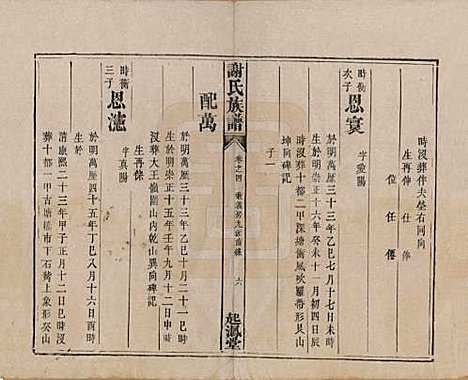 時没葬伴夫塋右同向
生再伸 仕 俸
位 任 僊
時衡次子 恩寰 字愛陽
生於明萬歷三十三年乙巳七月十七日未時
没於明崇正十六年癸未十一月初四日辰
時葬十都二甲深塘衝風吹羅帶形艮山
坤向碑記
子一
謝氏族譜
卷之四
六
起鳳堂
配萬
於明萬歷三十三年乙巳十月二十一日巳時
没於明崇正十五年壬午九月十二日申時
葬大王嶺圖山內乾山巽向碑記
生再傑
時衡三子 恩瀍 字真陽
於明萬歷四十五年丁巳八月十六日酉時
清康熙二十三年甲子正月十二日巳時没
葬十都一甲古塘橋市下石黄上象形癸山